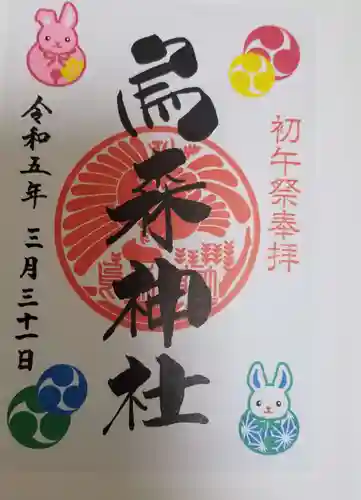 初午祭奉拝
烏森神社
令和五年 三月三十一日